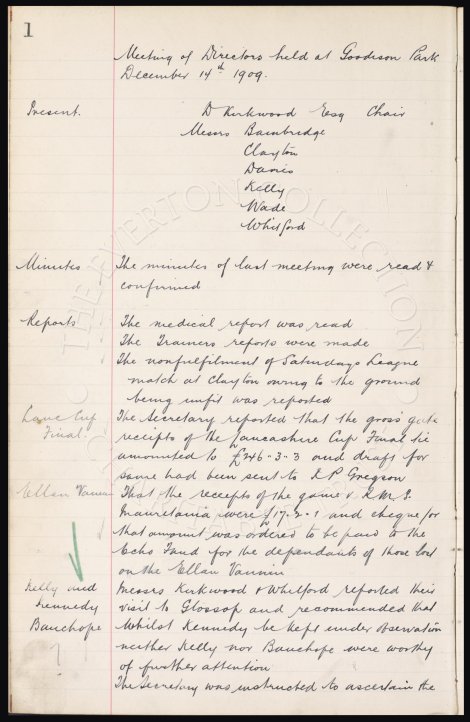 1
Meeting of Directors held at Goodison Park
December 14th 1909.
Present.
D Kirkwood Esq Chair
Messrs Bainbridge
Clayton
Davies
Kelly
Wade
Whitford
Minutes
The minutes of last meeting were read &
confirmed
Reports
The medical report was read
The Trainers reports were made
The nonfulfilment of Saturdays League
match at Clayton owing to the ground
being unfit was reported
Lanc Cup
Final.
The Secretary reported that the gross gate
receipts of the Lancashire Cup Final tie
amounted to £246-3-3 and draft for
same had been sent to R P Gregson
Ellan Vannin
That the receipts of the game v R.M.S.
Mauretania were £17-2-1 and cheque for
that amount was ordered to be paid to the
Echo Fund for the dependants of those lost
on the Ellan Vannin
Kelly and
Kennedy
Bauchope
Messrs Kirkwood & Whitford reported their
visit to Glossop and recommended that
Whilst Kennedy be kept under observation
neither Kelly nor Bauchope were worthy
of further attention
The Secretary was instructed to ascertain the
THE EVERTON COLLECTION